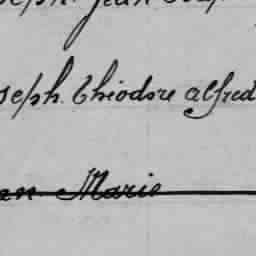 seph. Jean
seph. Théodore alfred
en Marie